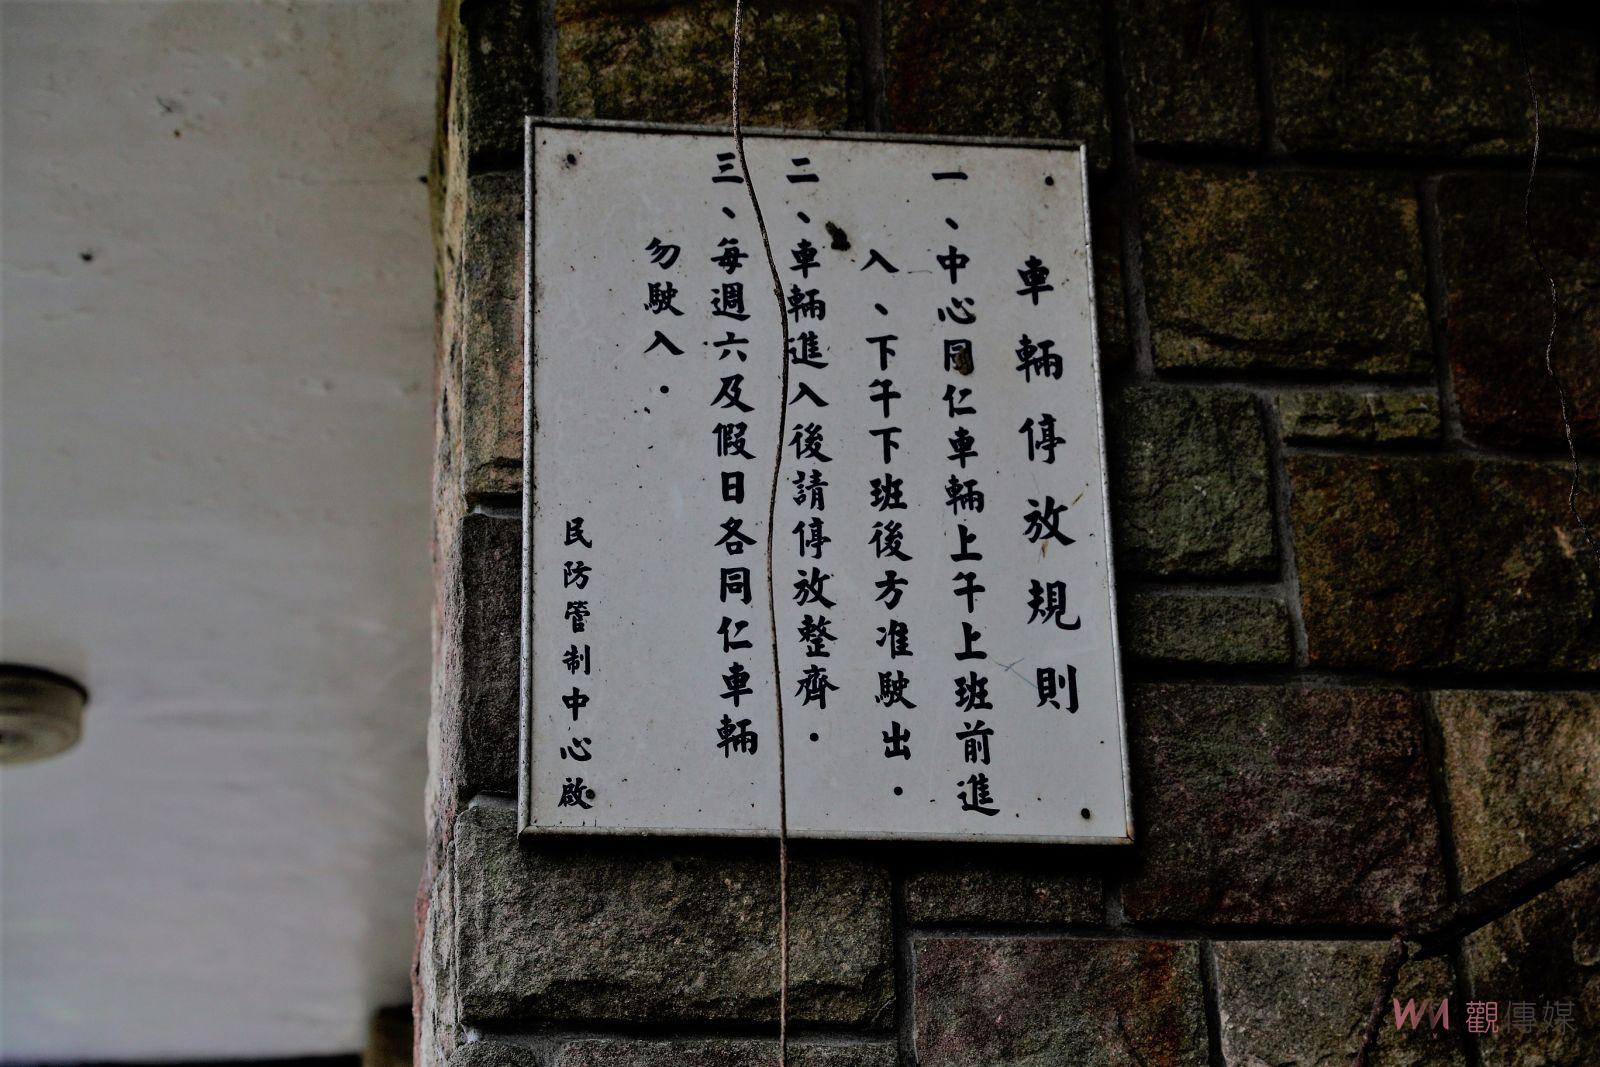 車輛停放規則
一、中心同仁車輛上午上班前進
入、下午下班後方准駛出．
二、車輛進入後請停放整齊．
三、每週六及假日各同仁車輛
勿駛入．
民防管制中心啟
WM 觀傳媒